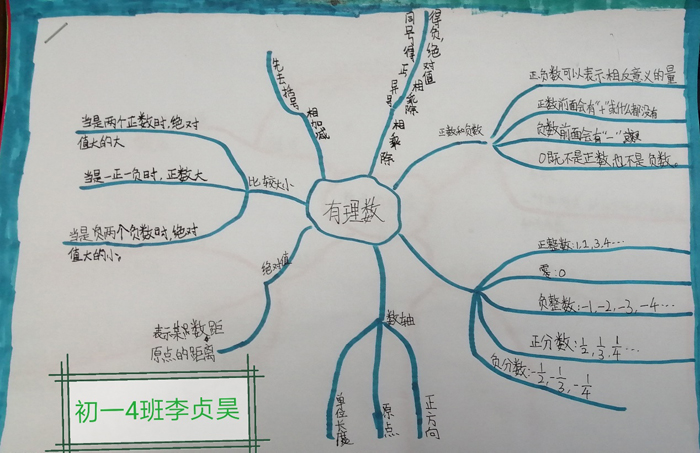 有理数
相加减
先去括号
相乘除
同号得正,异号
得负,绝对值
相乘除
正数和负数
正负数可以表示相反意义的量
正数前面会有"+"或什么都没有
负数前面会有"—"
0既不是正数,也不是负数。
正整数:1,2,3,4…
零:0
负整数:-1,-2,-3,-4…
正分数:1/2,1/3,1/4…
负分数:-1/2,-1/3,-1/4
数轴
单位长度
原点
正方向
绝对值
表示某数距
原点的距离
比较大小
当是两个正数时,绝对
值大的大
当是一正一负时,正数大
当是负两个负数时,绝对
值大的小。
初一4班李贞昊